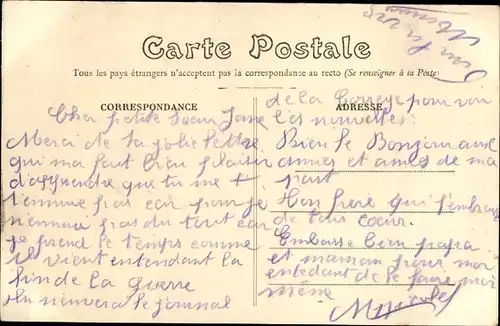 Carte Postale
Tous les pays étrangers n'acceptent pas la correspondance au recto (Se renseigner à la Poste)
CORRESPONDANCE
Cher petite Sœur Jane
Merci de ta jolie lettre
qui ma faut bien plaisir
d'apprendre que tu me
t'ennuie pas car pour je
n'ennuie pas du tout car
je prend le temps comme
il vient entendant la
fin de la guerre
tu m'envera le journal
ADRESSE
de la Correze pour voir
les nouvelles.
Bien le Bonjour aux
amies et amis de ma
part
Ton frere qui t'embrasse
de tous coeur.
Embrasse bien papa
et maman pour moi
entedant de le faire moi
même